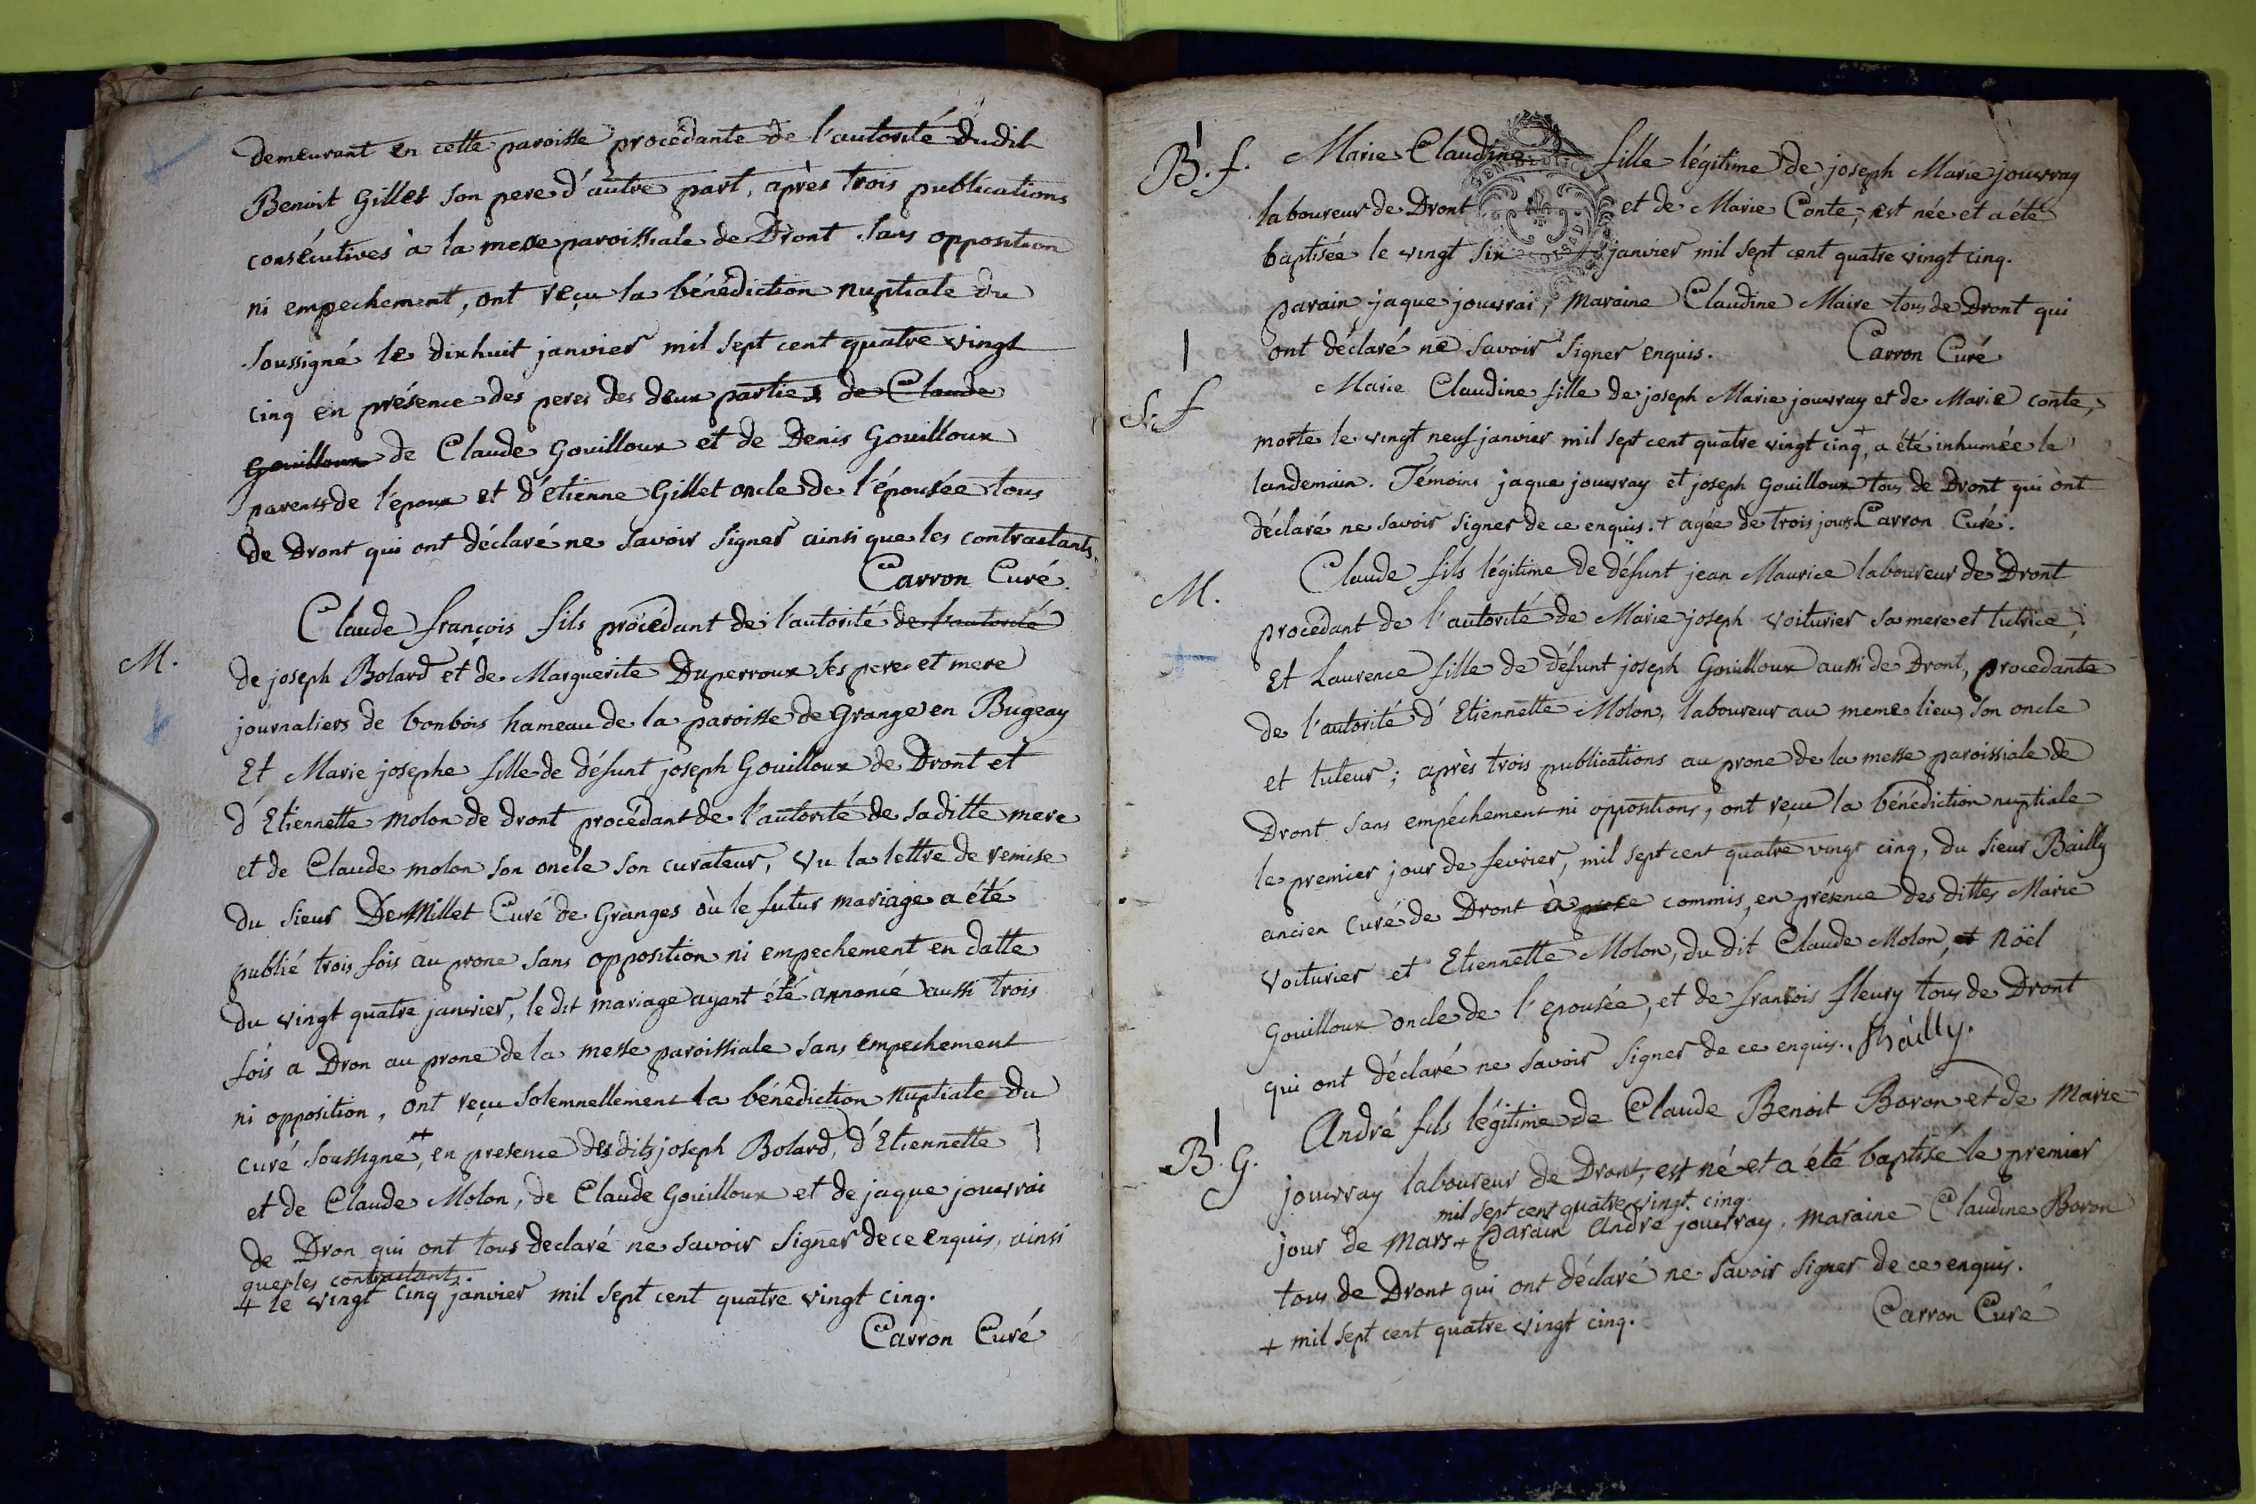 demeurant en cette paroisse procédante de l'autorité dudit
Benoit Gillet son pere d'autre part, après trois publications
consécutives à la messe paroissiale de Dront sans opposition
ni empechement, ont reçu la bénédiction nuptiale du
soussigné le dixhuit janvier mil sept cent quatre vingt
cinq en présence des peres des deux parties de Claude
Gouilloux de Claude Gouilloux et de Denis Gouilloux
parents de l'epoux et d'etienne Gillet oncle de l'épousée tous
de Dront qui ont déclaré ne savoir signer ainsi que les contractants.
Carron Curé.
Claude françois fils procédant de l'autorité de l'autorité
M.
de joseph Bolard et de Marguerite Duperroux ses pere et mere
journaliers de bonbois hameau de la paroisse de Grange en Bugeay
Et Marie josephe fille de défunt joseph Gouilloux de Dront et
d'Etiennette molon de dront procédant de l'autorité de saditte mere
et de Claude molon son oncle son curateur, vu la lettre de remise
du sieur DeMillet Curé de Granges où le futur mariage a été
publié trois fois au prone sans opposition ni empechement en datte
du vingt quatre janvier, le dit mariage ayant été annoncé aussi trois
fois a Dron au prone de la messe paroissiale sans empechement
ni opposition, ont reçu solemnellement la bénédiction nuptiale du
curé soussigné, + en presence desdits joseph Bolard, d'Etiennette
et de Claude Molon, de Claude Gouilloux et de jaque jouvrai
de Dron qui ont tous declaré ne savoir signer de ce enquis, ainsi
que les contractants.
+ le vingt cinq janvier mil sept cent quatre vingt cinq.
Carron Curé
1
B. f. Marie Claudine fille légitime de joseph Marie jouvray
laboureur de Dront et de Marie Conte, est née et a été
baptisée le vingt six janvier mil sept cent quatre vingt cinq.
parain jaque jouvrai, maraine Claudine Maire tous de Dront qui
ont déclaré ne savoir signer enquis. Carron Curé
1
S. f Marie Claudine fille de joseph Marie jouvray et de Marie conte,
morte le vingt neuf janvier mil sept cent quatre vingt cinq, + a été inhumée le
landemain. Témoins jaque jouvray et joseph Gouilloux tous de Dront qui ont
déclaré ne savoir signer de ce enquis. + agée de trois jours. Carron Curé.
Claude fils légitime de défunt jean Maurice laboureur de Dront
M.
procedant de l'autorité de Marie joseph Voiturier sa mere et tutrice;
Et Laurence fille de défunt joseph Gouilloux aussi de Dront, procedante
de l'autorité d'Etiennette Molon, laboureur au meme lieu, son oncle
et tuteur; après trois publications au prone de la messe paroissiale de
Dront sans empéchement ni oppositions, ont reçu la bénédiction nuptiale
le premier jour de fevrier, mil sept cent quatre vingt cinq, du sieur Bailly
ancien curé de Dront à commis, en présence des dittes Marie
Voiturier et Etiennette Molon, du dit Claude Molon, et Nöel
Gouilloux oncle de l'epousée, et de françois fleury tous de Dront
qui ont déclaré ne savoir signer de ce enquis. Bailly.
1
B. G. André fils légitime de Claude Benoit Boron et de Marie
jouvray laboureur de Dront, est né et a été baptisé le premier
mil sept cent quatre vingt cinq.
jour de Mars + Parain André jouvray, maraine Claudine Boron
tous de Dront qui ont déclaré ne savoir signer de ce enquis.
+ mil sept cent quatre vingt cinq. Carron Curé